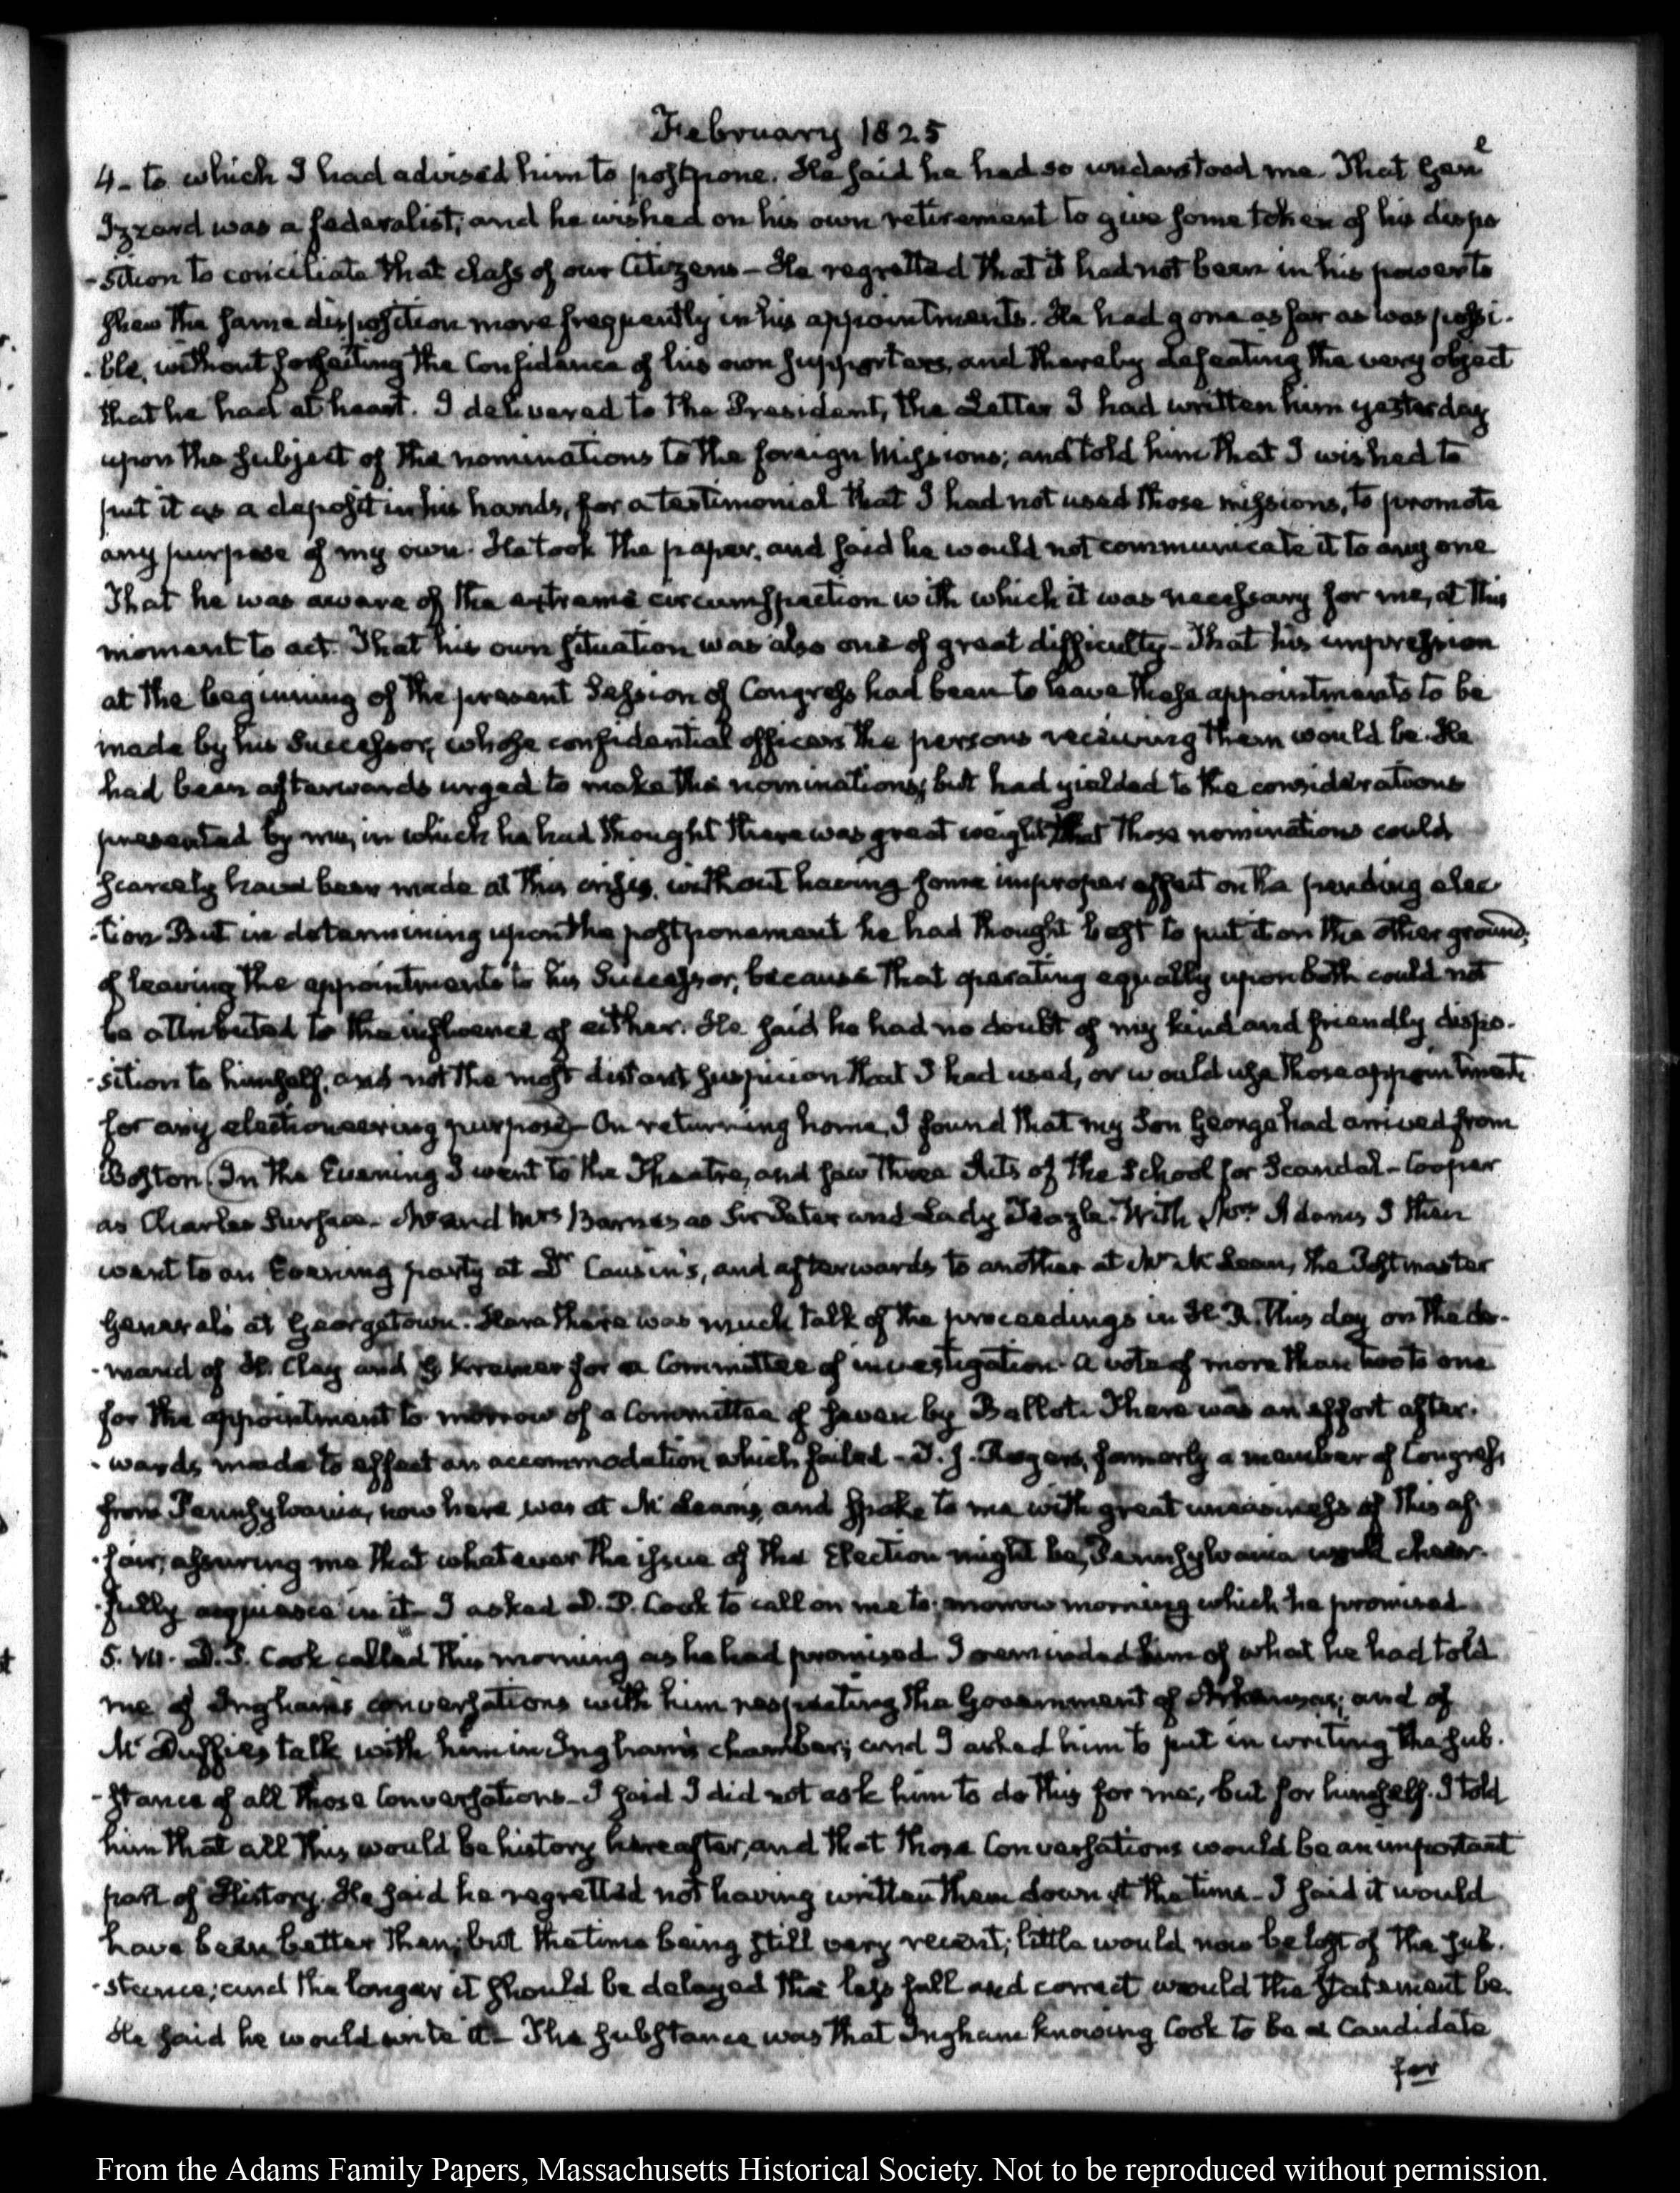 February 1825
4- to which I had advised him to postpone. He said he had so understood me. That Genl
Izzard was a federalist, and he wished on his own retirement to give some token of his dispo
-sition to conciliate that class of our Citizens - He regretted that it had not been in his power to
shew the same disposition more frequently in his appointments. He had gone as far as was possi-
-ble, without forfeiting the Confidence of his own supporters, and thereby defeating the very object
that he had at heart. I delivered to the President, the Letter I had written him yesterday
upon the subject of the nominations to the foreign Missions; and told him that I wished to
put it as a deposit in his hands, for a testimonial that I had not used those missions, to promote
any purpose of my own. He took the paper, and said he would not communicate it to any one
That he was aware of the extreme circumspection with which it was necessary for me, at this
moment to act. That his own situation was also one of great difficulty - That his impression
at the beginning of the present Session of Congress had been to leave these appointments to be
made by his Successor, whose confidential officers the persons receiving them would be. He
had been afterwards urged to make the nominations; but had yielded to the considerations
presented by me, in which he had thought there was great weight that those nominations could
scarcely have been made at this crisis, without having some improper effect on the pending elec-
-tion But in determining upon the postponement he had thought best to put it on the other ground,
of leaving the appointments to his Successor, because that operating equally upon both could not
be attributed to the influence of either. He said he had no doubt of my kind and friendly dispo-
-sition to himself, and not the most distant suspicion that I had used, or would use those appointments
for any electioneering purpose - On returning home, I found that my Son George had arrived from
Boston. In the Evening I went to the Theatre, and saw three Acts of the School for Scandal - Cooper
as Charles Surface. Mr and Mrs Barnes as Sir Peter and Lady Teazle. With Mrs Adams I then
went to an Evening party at Dr Causin's, and afterwards to another at Mr McLean, the Postmaster
General's at Georgetown. Here there was much talk of the proceedings in H. R. this day on the de-
-mand of H. Clay and G. Kremer for a Committee of investigation. A vote of more than two to one
for the appointment to morrow of a Committee of seven by Ballot. There was an effort after-
-wards made to effect an accommodation which failed - T. J. Rogers, formerly a member of Congress
from Pennsylvania, now here, was at McLean's, and spoke to me with great uneasiness of this af-
-fair; assuring me that whatever the issue of the Election might be, Pennsylvania would cheer-
-fully acquiesce in it - I asked D. P. Cook to call on me to-morrow morning which he promised
5. VII. D. P. Cook called this morning as he had promised. I reminded him of what he had told
me of Ingham's conversations with him respecting the Government of Arkansas; and of
McDuffie's talk with him in Ingham's chamber; and I asked him to put in writing the sub-
-stance of all those Conversations - I said I did not ask him to do this for me, but for himself. I told
him that all this would be history hereafter, and that those Conversations would be an important
part of History. He said he regretted not having written them down at the time - I said it would
have been better then; but the time being still very recent, little would now be lost of the sub-
-stance; and the longer it should be delayed the less full and correct would the statement be.
He said he would write it - The substance was that Ingham knowing Cook to be a Candidate
for
From the Adams Family Papers, Massachusetts Historical Society. Not to be reproduced without permission.